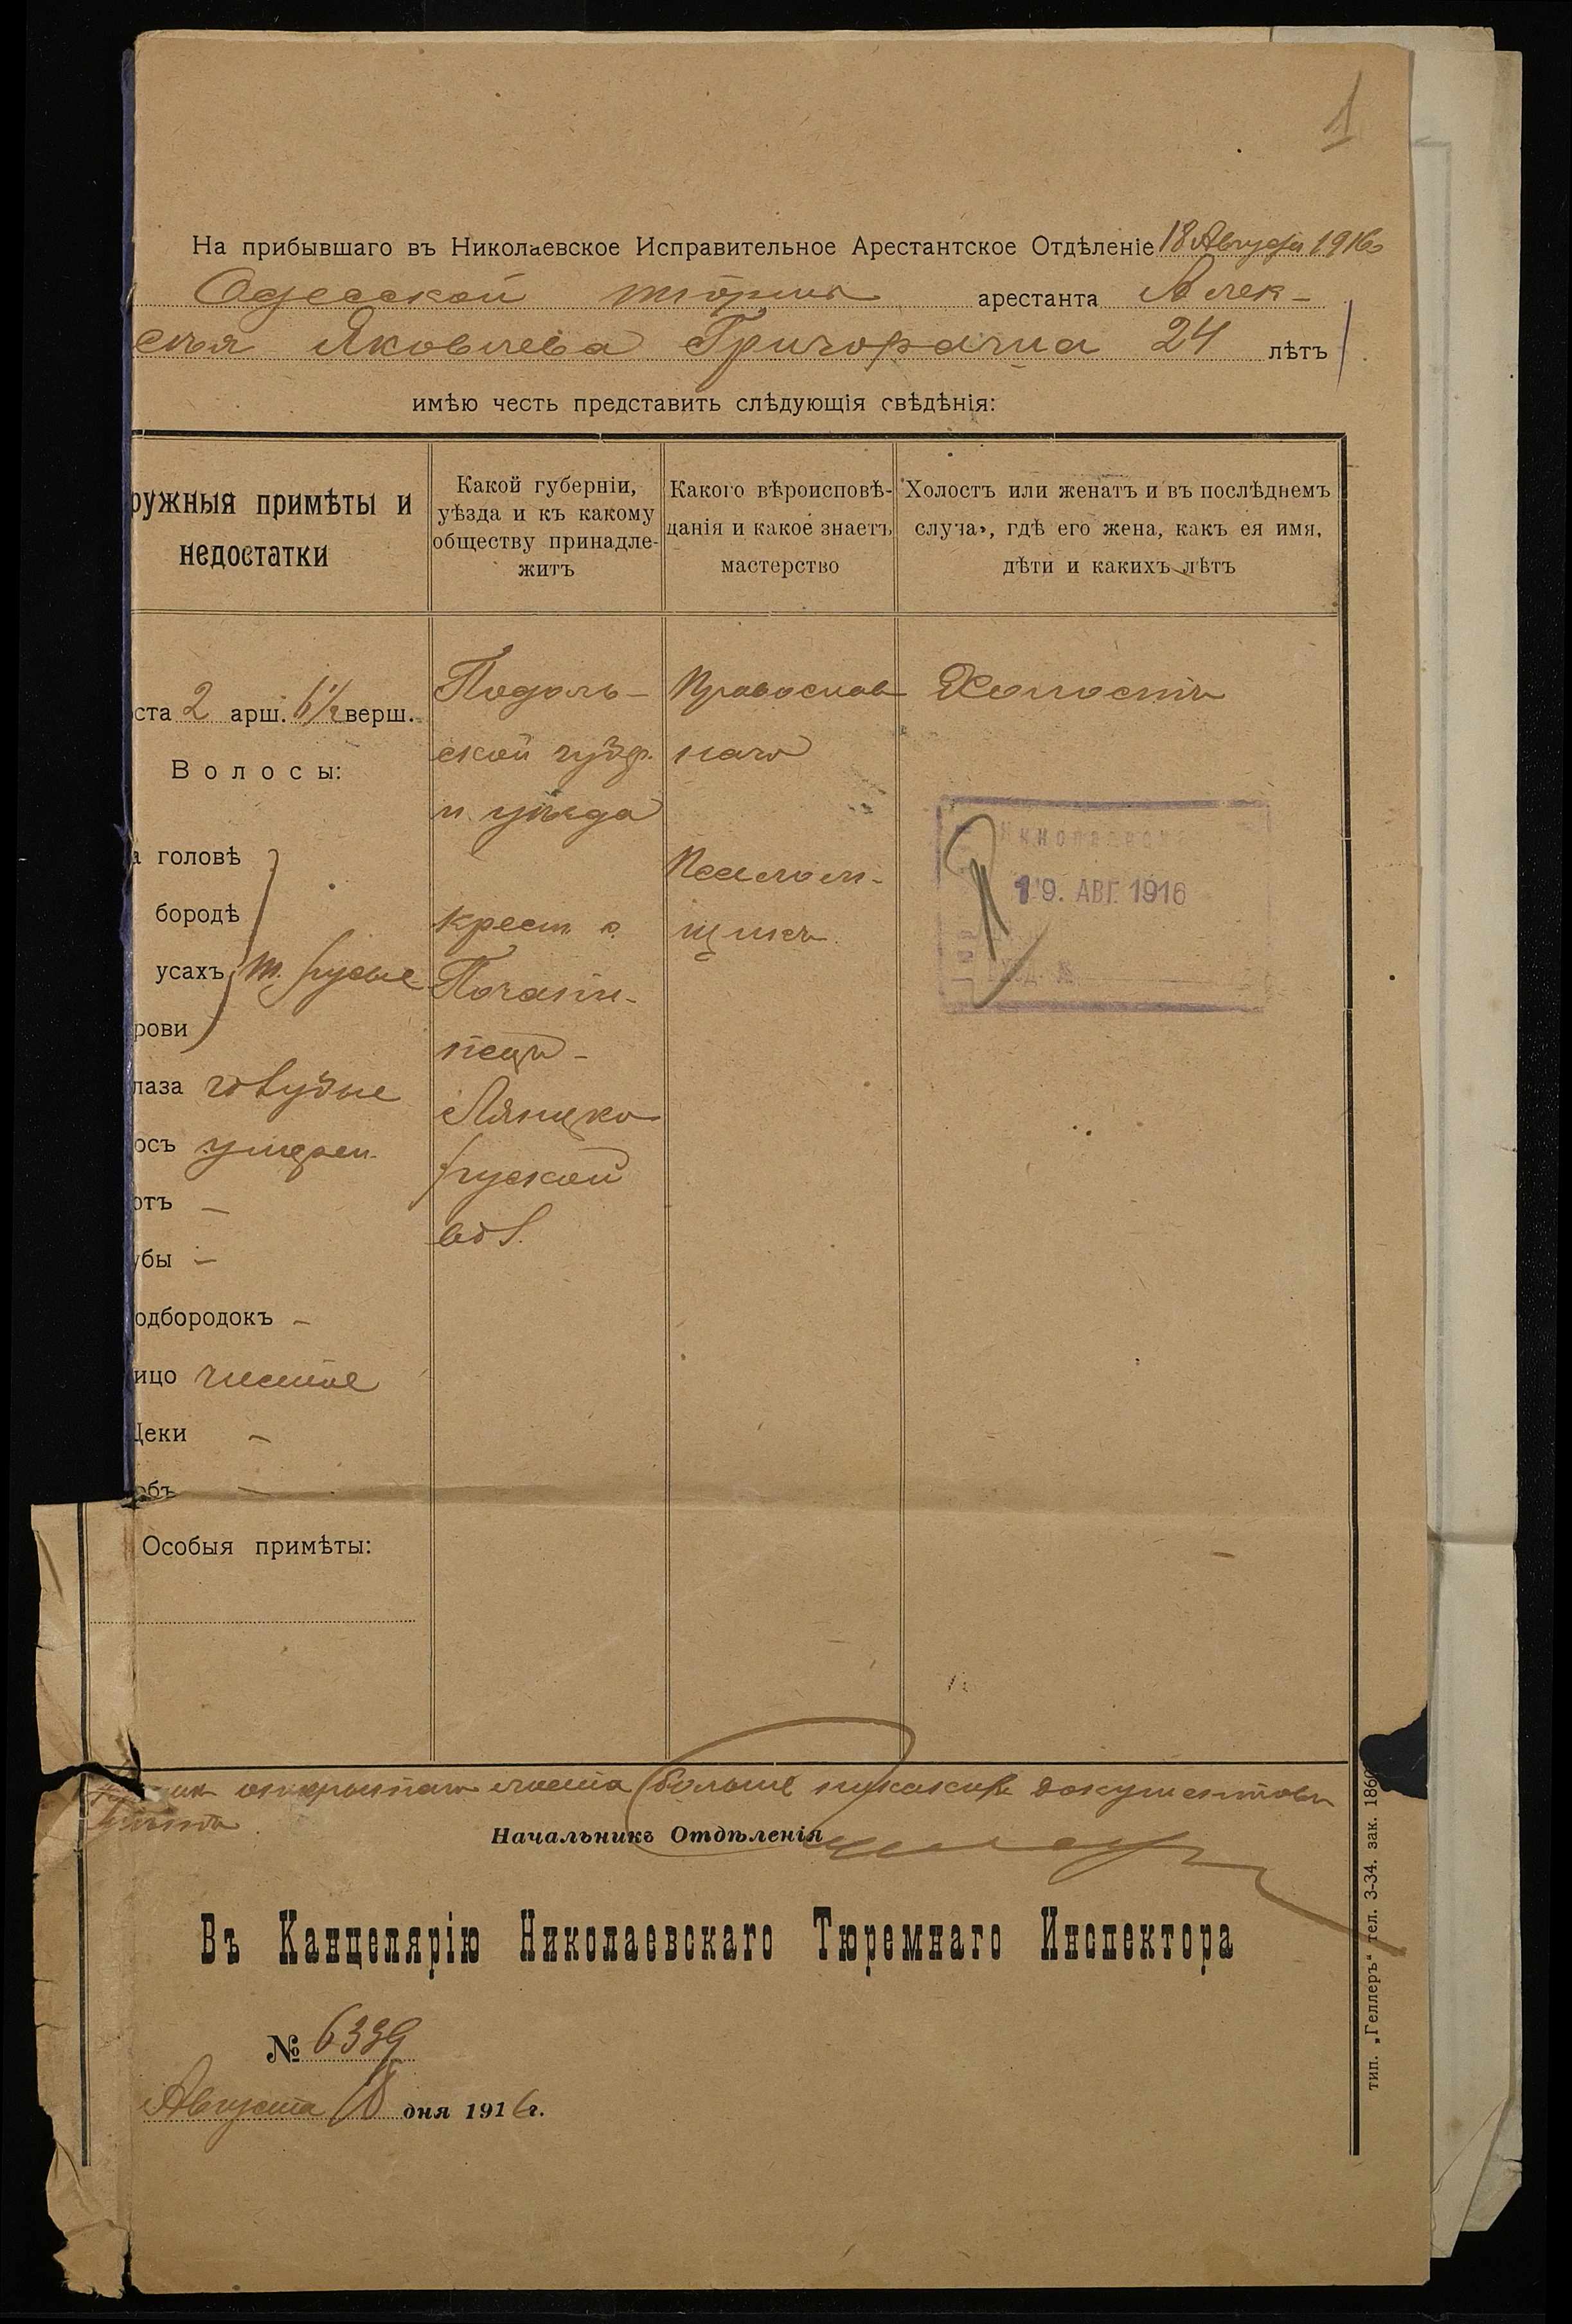 1
На прибывшаго въ Николаевское Исправительное Арестантское Отдѣленіе 18 Августа 1916
Одесской тюрьмы арестанта Алек-
сѣя Яковлева Григорашa 24 лѣтъ
имѣю честь представить слѣдующія свѣдѣнія:
ружныя примѣты и
недостатки
Какой губерніи,
уѣзда и къ какому
обществу принадле-
житъ
Какого вѣроисповѣ-
данія и какое знаетъ
мастерство
Холостъ или женатъ и въ послѣднемъ
случаѣ, гдѣ его жена, какъ ея имя,
дѣти и какихъ лѣтъ
ста 2 арш. 6 1/2 верш.
Волосы:
головѣ
бородѣ
усахъ т. русые
рови
лаза голубые
осъ умѣрен.
отъ —
убы —
одбородокъ —
ицо чистое
Щеки —
объ —
Особыя примѣты:
Подоль-
ской губ.
и уѣзда
крест. с.
ской
вол.
Православ
наго
Холостъ
Николаевск
19. АВГ. 1916
открытаго листа больше никакихъ документовъ
Начальникъ Отдѣленія
Въ Канцелярію Николаевскаго Тюремнаго Инспектора
№ 6339
Августа 18 дня 1916 г.
тип. „Геллеръ“ тел. 3-34. зак. 1860